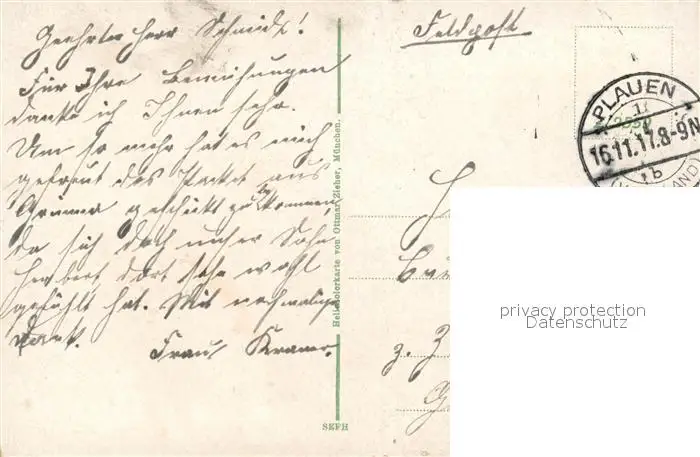 Geehrter Herr Schmidt!
Für Ihre Bemühungen
danke ich Ihnen sehr.
Um so mehr hat es mich
gefreut das Packet aus
Grimma geschickt zu bekommen,
da sich doch unser Sohn
Herbert dort sehr wohl
gefühlt hat. Mit nochmaligen
Dank.
Frau Kramer.
Heliokolorkarte von Ottmar Zieher, München.
SEFH
Feldpost
PLAUEN
16.11.17.8-9N
H
z. Z
privacy protection
Datenschutz